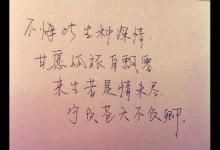 不悔此生种深情
甘愿孤旅自飘零
来生若是情未尽
宁负苍天不负卿